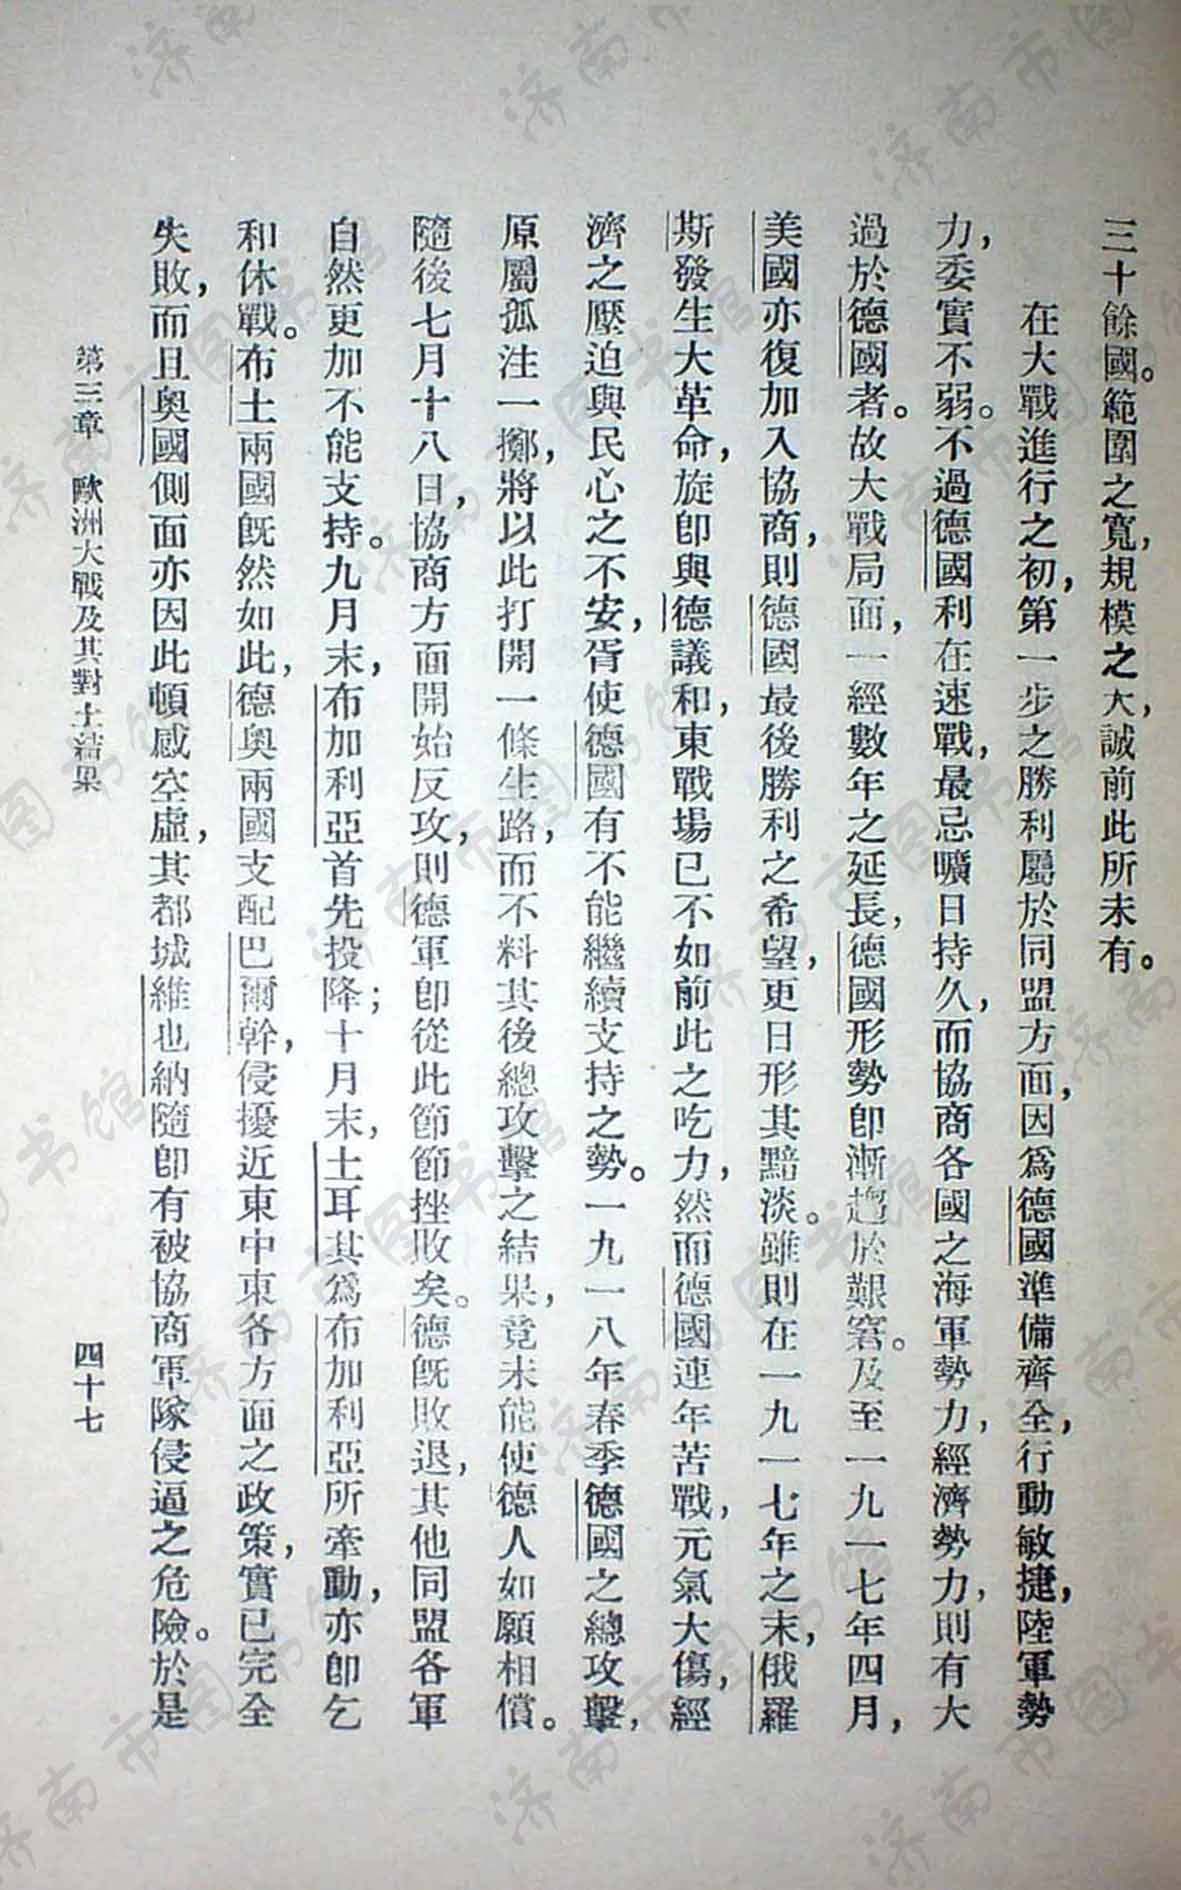 三十餘國。範圍之寬，規模之大，誠前此所未有。
在大戰進行之初，第一步之勝利屬於同盟方面，因爲德國準備齊全，行動敏捷，陸軍勢
力，委實不弱。不過德國利在速戰，最忌曠日持久，而協商各國之海軍勢力，經濟勢力，則有大
過於德國者。故大戰局面，一經數年之延長，德國形勢卽漸趨於艱窘。及至一九一七年四月，
美國亦復加入協商，則德國最後勝利之希望，更日形其黯淡。雖則在一九一七年之末，俄羅
斯發生大革命，旋卽與德議和，東戰場已不如前此之吃力，然而德國連年苦戰，元氣大傷，經
濟之壓迫與民心之不安，胥使德國有不能繼續支持之勢。一九一八年春季德國之總攻擊，
原屬孤注一擲，將以此打開一條生路，而不料其後總攻擊之結果，竟未能使德人如願相償。
隨後七月十八日，協商方面開始反攻，則德軍卽從此節節挫敗矣。德旣敗退，其他同盟各軍
自然更加不能支持。九月末，布加利亞首先投降；十月末，土耳其爲布加利亞所牽動，亦卽乞
和休戰。布土兩國旣然如此，德奧兩國支配巴爾幹，侵擾近東中東各方面之政策，實已完全
失敗，而且奧國側面亦因此頓感空虛，其都城維也納隨卽有被協商軍隊侵逼之危險。於是
第三章 歐洲大戰及其對土結果 四十七
济南市图书馆